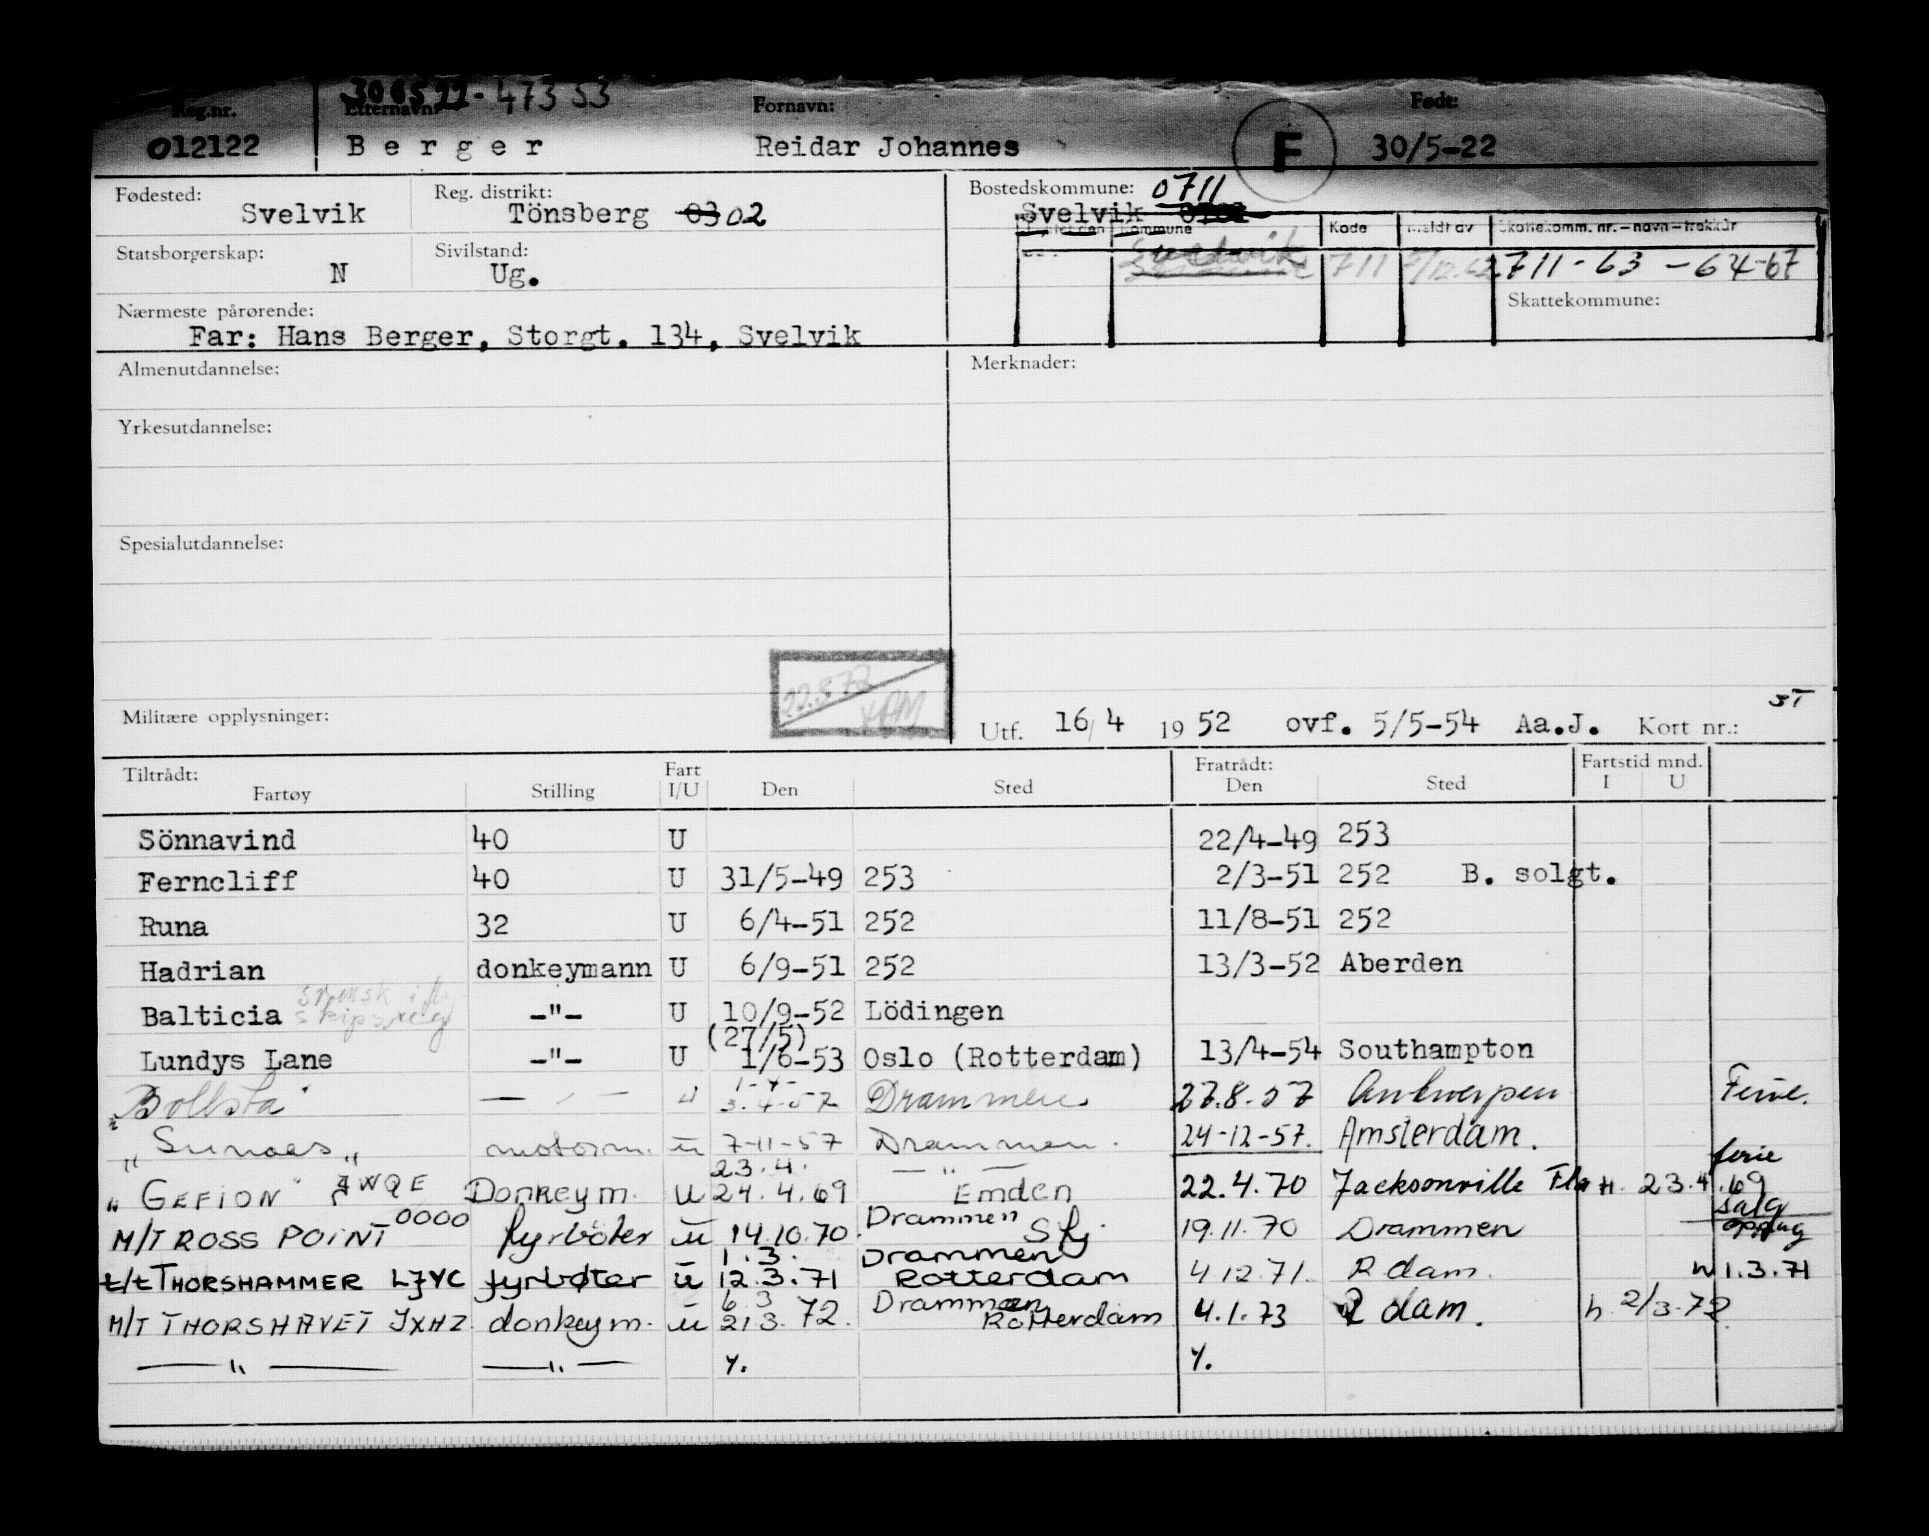 300522-47353
Reg.nr. Etternavn: Fornavn: Født:
012122 Berger Reidar Johannes F 30/5-22
Fødested: Reg. distrikt: Bostedskommune: 0711
Svelvik Tönsberg 03 02 Svelvik
Kommune Kode Meldt av Skattekomm. nr.-navn-trekkår
Statsborgerskap: Sivilstand: Svelvik 711
N Ug. 711-63 - 64-67
Nærmeste pårørende: Skattekommune:
Far: Hans Berger, Storgt. 134, Svelvik
Almenutdannelse: Merknader:
Yrkesutdannelse:
Spesialutdannelse:
Militære opplysninger: Utf. 16/4 1952 ovf. 5/5-54 Aa.J. Kort nr.: ST
Tiltrådt: Fart Fratrådt: Fartstid mnd.
Fartøy Stilling I/U Den Sted Den Sted I U
Sönnavind 40 U 22/4-49 253
Ferncliff 40 U 31/5-49 253 2/3-51 252 B. solgt.
Runa 32 U 6/4-51 252 11/8-51 252
Hadrian donkeymann U 6/9-51 252 13/3-52 Aberden
Balticia svensk i skipsreg -"- U 10/9-52 Lödingen
(27/5)
Lundys Lane -"- U 1/6-53 Oslo (Rotterdam) 13/4-54 Southampton
1-4-
"Bollsta" — " — U 3.4.57 Drammen 27.8.57 Antwerpen Ferie.
"Sunaas" motorm. u 7-11-57 Drammen. 24-12-57. Amsterdam.
23.4. — " — ferie
"GEFION" JWQE Donkeym. u 24.4.69 Emden 22.4.70 Jacksonville Fla H. 23.4.69
0000 Drammen salg
M/T ROSS POINT fyrböter u 14.10.70. 19.11.70 Drammen oppsag
1.3. Drammen
t/t THORSHAMMER LJYC fyrbøter u 12.3.71 Rotterdam 4.12.71. R dam. h 1.3.71
6.3 Drammen
M/T THORSHAVET JXHZ donkeym. u 21.3.72. Rotterdam 4.1.73 R dam. h 2/3-72
— " — — " — Y. Y.